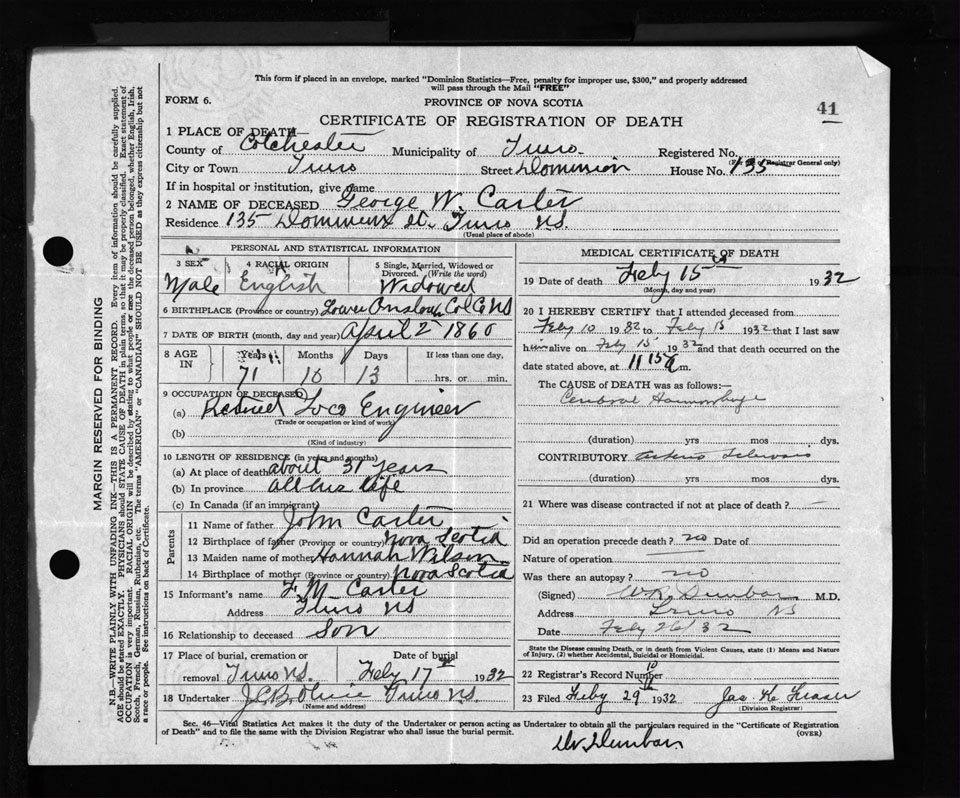 This form if placed in an envelope, marked "Dominion Statistics—Free, penalty for improper use, $300," and properly addressed
will pass through the Mail "FREE"
FORM 6.
PROVINCE OF NOVA SCOTIA
41
CERTIFICATE OF REGISTRATION OF DEATH
1 PLACE OF DEATH—
County of Colchester Municipality of Truro. Registered No.
(For use of Registrar General only)
City or Town Truro Street Dominion House No. 135
If in hospital or institution, give name
2 NAME OF DECEASED George W. Carter
Residence 135 Dominion St. Truro NS.
(Usual place of abode)
PERSONAL AND STATISTICAL INFORMATION
3 SEX 4 RACIAL ORIGIN 5 Single, Married, Widowed or Divorced. (Write the word)
Male English Widowed
6 BIRTHPLACE (Province or country) Lower Onslow Col Co NS
7 DATE OF BIRTH (month, day and year) April 2 1860
8 AGE IN Years Months Days If less than one day,
71 10 13 hrs. or min.
9 OCCUPATION OF DECEASED
(a) Retired Loco Engineer
(Trade or occupation or kind of work)
(b)
(Kind of industry)
10 LENGTH OF RESIDENCE (in years and months)
(a) At place of death about 31 years
(b) In province all his life
(c) In Canada (if an immigrant)
Parents
11 Name of father John Carter
12 Birthplace of father (Province or country) Nova Scotia
13 Maiden name of mother Hannah Wilson
14 Birthplace of mother (Province or country) Nova Scotia
15 Informant's name F. M. Carter
Address Truro NS
16 Relationship to deceased Son
17 Place of burial, cremation or Date of burial
removal Truro NS. Feby 17 1932
18 Undertaker Truro NS.
(Name and address)
MEDICAL CERTIFICATE OF DEATH
19 Date of death Feby 15 1932
(Month, day and year)
20 I HEREBY CERTIFY that I attended deceased from
Feby 10 1932 to Feby 15 1932 that I last saw
him alive on Feby 15 1932 and that death occurred on the
date stated above, at 11 15 a m.
The CAUSE of DEATH was as follows:—
Cerebral Haemorrhage
(duration) yrs mos dys.
CONTRIBUTORY Arterio Sclerosis
(duration) yrs mos dys.
21 Where was disease contracted if not at place of death?
Did an operation precede death? no Date of
Nature of operation
Was there an autopsy? no
(Signed) Dunbar M.D.
Address Truro NS
Date Feby 26/32
State the Disease causing Death, or in death from Violent Causes, state (1) Means and Nature of Injury, (2) whether Accidental, Suicidal or Homicidal.
22 Registrar's Record Number 10
23 Filed Feby 29 1932 Jas. K. Fraser
(Division Registrar)
Sec. 46—Vital Statistics Act makes it the duty of the Undertaker or person acting as Undertaker to obtain all the particulars required in the "Certificate of Registration
of Death" and to file the same with the Division Registrar who shall issue the burial permit.
(OVER)
Dr Dunbar
MARGIN RESERVED FOR BINDING
N.B.—WRITE PLAINLY WITH UNFADING INK—THIS IS A PERMANENT RECORD. Every item of information should be carefully supplied.
AGE should be stated EXACTLY. PHYSICIANS should STATE CAUSE OF DEATH in plain terms, so that it may be properly classified. Exact statement of
OCCUPATION is very important. RACIAL ORIGIN will be described by stating to what people or race the deceased person belonged, whether English, Irish,
Scotch, French, German, Russian, Ruthenian, etc. The terms "AMERICAN" or "CANADIAN" SHOULD NOT BE USED as they express citizenship but not
a race or people. See instructions on back of Certificate.